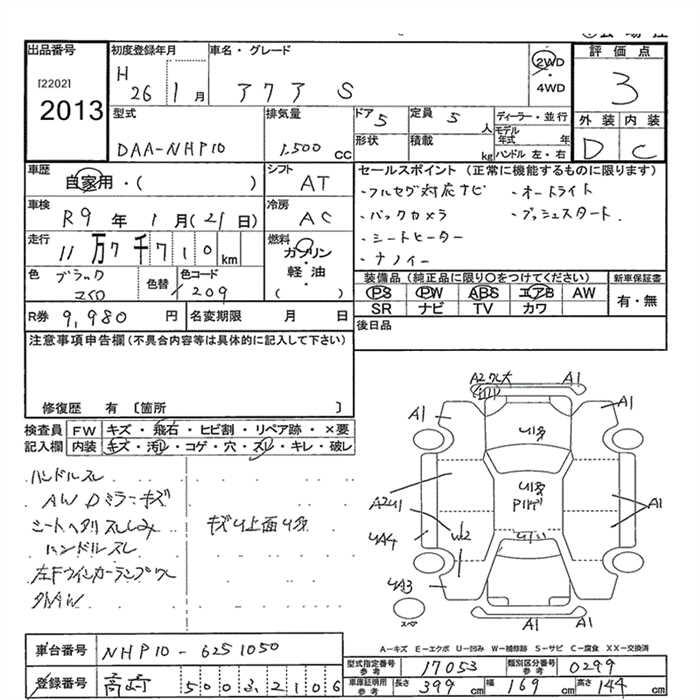 出品番号
[2202]
2013
初度登録年月
H 26 1 月
車名・グレード
アクア S
2WD
・
4WD
評価点
3
外装 内装
D C
型式
DAA-NHP10
排気量
1,500 cc
ドア 5
定員 5 人
形状
積載 kg
ディーラー・並行
モデル年式 年
ハンドル 左・右
車歴
自家用・( )
シフト
AT
セールスポイント (正常に機能するものに限ります)
・フルセグ対応ナビ ・オートライト
・バックカメラ ・プッシュスタート.
・シートヒーター
・ナノイー
車検
R9 年 1 月 (21 日)
冷房
AC
走行
11 万 7 千 7 1 0 km
燃料
ガソリン
・軽油・
( )
色
ブラック
色替
色コード
209
装備品 (純正品に限り○をつけてください)
PS PW ABS エアB AW
SR ナビ TV カワ
新車保証書
有・無
R券 9,980 円
名変期限 月 日
後日品
注意事項申告欄(不具合内容等は具体的に記入して下さい)
修復歴 有 〔箇所 〕
検査員 FW キズ・飛石・ヒビ割・リペア跡・×要
記入欄 内装 キズ・汚レ・コゲ・穴・スレ・キレ・破レ
ハンドルスレ
AW Dミラーキズ
シートヘタリスレしみ
キズ凹上面凹多
ハンドルスレ
左Fウインカーランプワレ
A2ワレ大
A1
A1
A1
凹多
凹多
A2凹1
A1
凹A4
凹2
凹A3
スペ
A1
A-キズ E-エクボ U-凹み W-補修跡 S-サビ C-腐食 XX-交換済
車台番号 NHP10-6251050
型式指定番号 参考 17053
類別区分番号 参考 0299
登録番号 高崎 500 ふ 2106
車庫証明用 参考 長さ 399 cm 幅 169 cm 高さ 144 cm